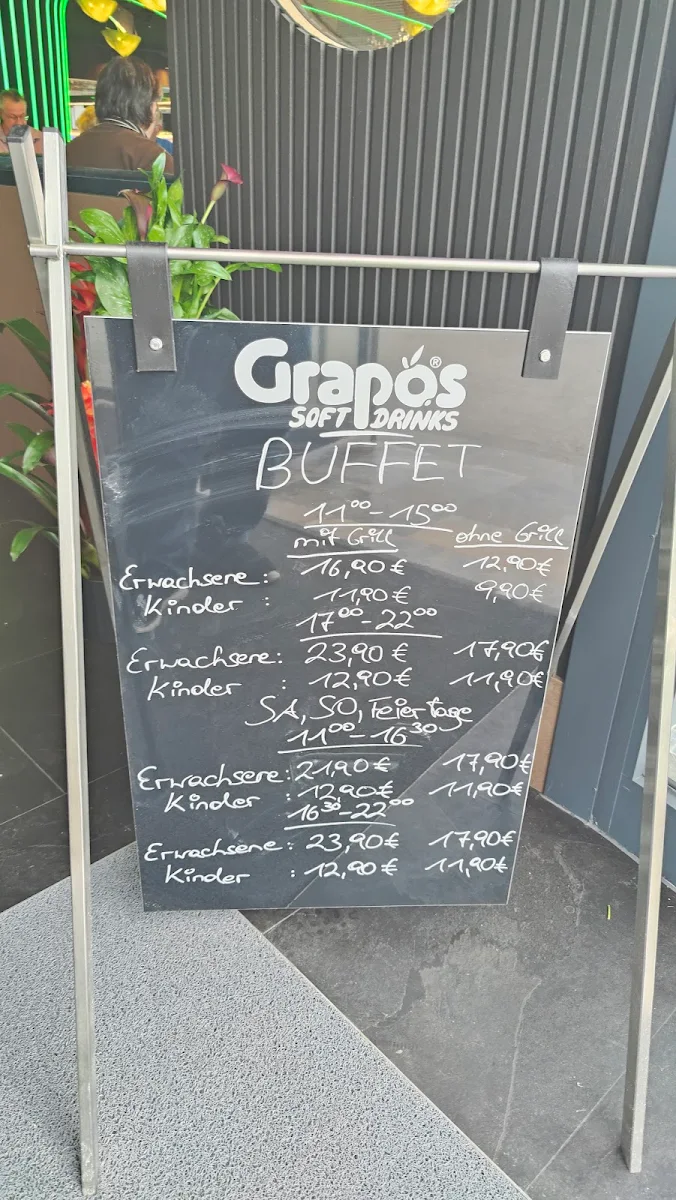 Grapos®
SOFT DRINKS
BUFFET
11⁰⁰-15⁰⁰
mit Grill ohne Grill
Erwachsene: 16,90€ 12,90€
Kinder : 11,90€ 9,90€
17⁰⁰-22⁰⁰
Erwachsene: 23,90€ 17,90€
Kinder : 12,90€ 11,90€
SA, SO, Feiertage
11⁰⁰-16³⁰
Erwachsene: 21,90€ 17,90€
Kinder : 12,90€ 11,90€
16³⁰-22⁰⁰
Erwachsene: 23,90€ 17,90€
Kinder : 12,90€ 11,90€